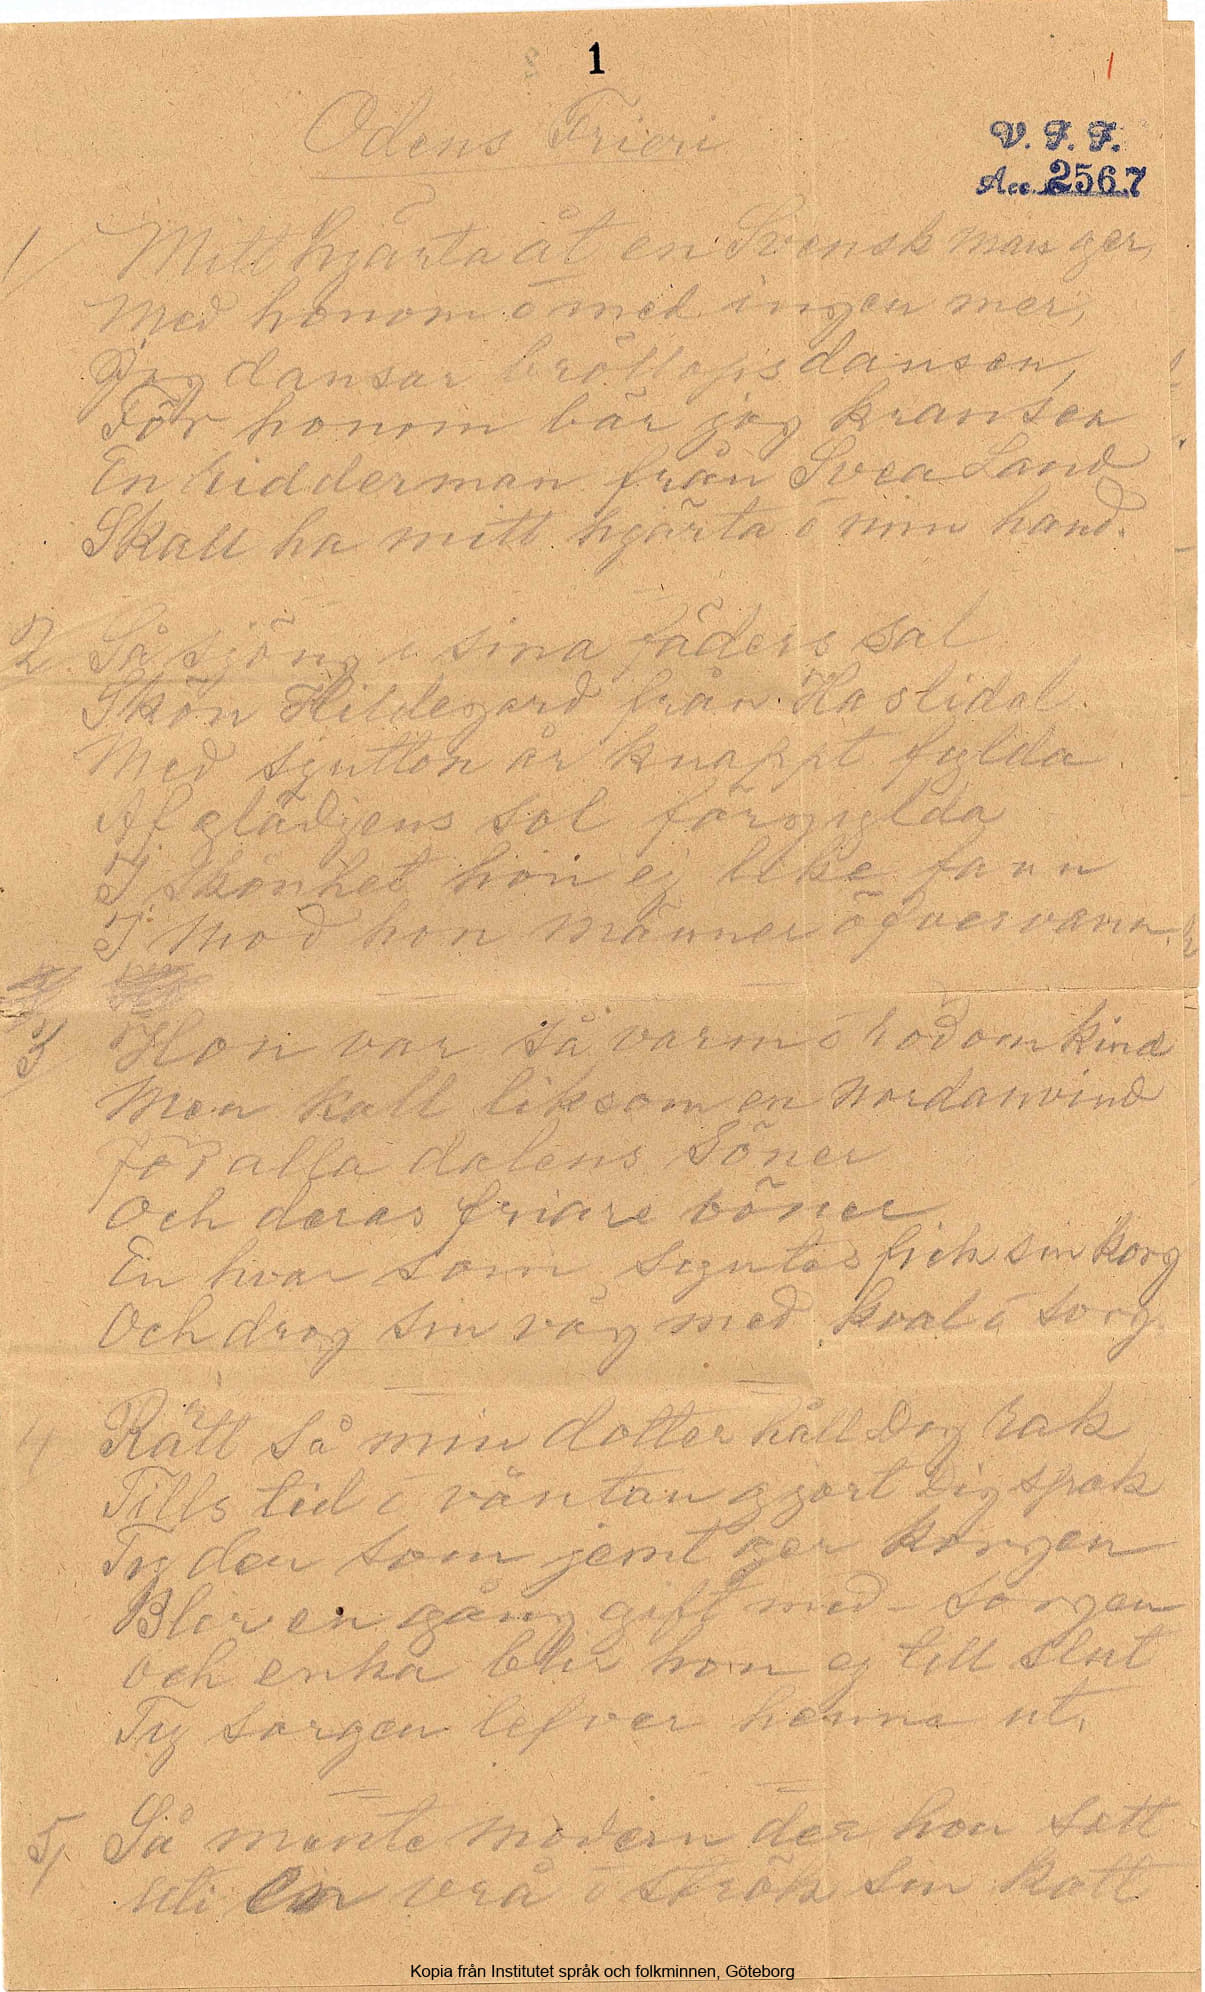 1
1
Odens Frieri
V. F. F.
Acc. 2567
1/ Mitt hjärta åt en Svensk man ger,
Med honom ó med ingen mer,
Jag dansar bröllopsdansen,
För honom bär jag kransen
En Ridderman från Svea Land
Skall ha mitt hjärta ó min hand.
2. Så sjöng i sina fäders sal
Skön Hildegard från Haslidal.
Med sjutton år knappt fylda
Af glädjens sol förgylda
I Skönhet hon ej like fann
I Mod hon Männer öfvervann.
3/ Hon var så varm ó rod om kind
Men kall liksom en Nordanvind
För alla dalens Söner
Och deras friare böner
En hvar som syntes fick sin korg
Och drog sin väg med kval ó sorg.
4 Rätt så min dotter håll Dig Rak
Tills tid ó väntan gjort Dig spak
Ty den som jemt ger korgen
Blir en gång gift med - Sorgen
och enka blir hon ej till slut
Ty sorgen lefver henne ut.
5/ Så mente Modern der hon satt
Uti en vrå ó strök sin katt
Kopia från Institutet språk och folkminnen, Göteborg